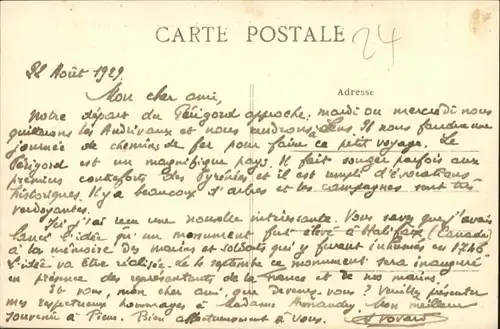 CARTE POSTALE
24
22 Août 1929.
Adresse
Mon cher ami,
Notre départ du Périgord approche. mardi ou mercredi nous
quitterons les Andrivaux et nous rentrerons à Sens. Il nous faudra une
journée de chemins de fer pour faire ce petit voyage. Le
Périgord est un magnifique pays. Il fait songer parfois aux
premiers contreforts des Pyrénées et il est rempli d'évocations
historiques. Il y a beaucoup d'arbres et les campagnes sont très
verdoyantes.
Ici j'ai reçu une nouvelle intéressante. Vous savez que j'avais
lancé l'idée qu'un monument fut élevé à Halifax (Canada)
à la mémoire des marins et soldats qui y furent inhumés en 1746
L'idée va être réalisée. le septembre ce monument sera inauguré
en présence des représentants de la France et de nos marins.
Et vous, mon cher ami, que devenez-vous ? Veuillez présenter
mes respectueux hommages à Madame. Mon meilleur
souvenir à Pierre. Bien affectueusement à vous.